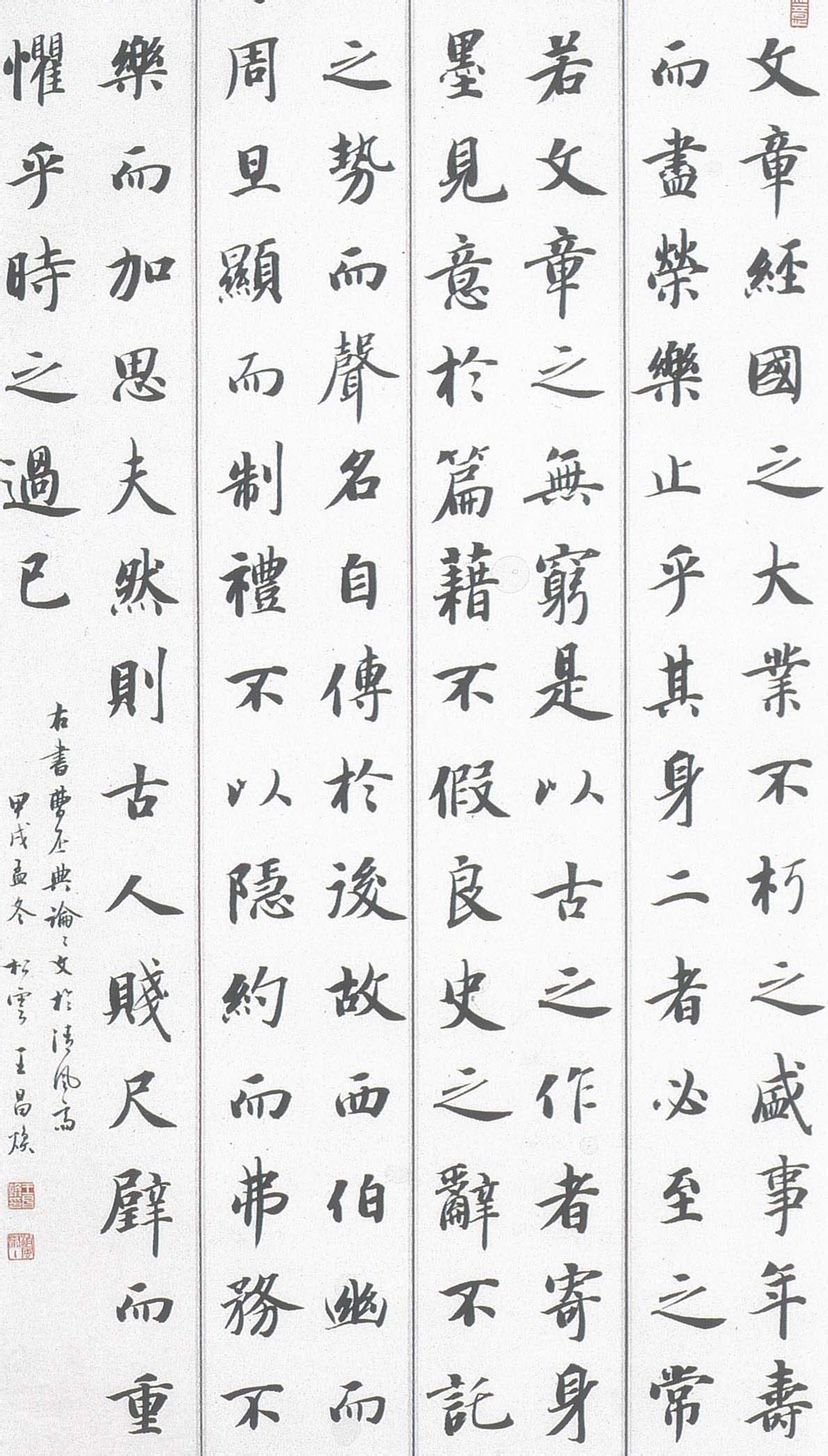 文章經國之大業不朽之盛事年壽
而盡榮樂止乎其身二者必至之常
若文章之無窮是以古之作者寄身
墨見意於篇藉不假良史之辭不託
之勢而聲名自傳於後故西伯幽而
周旦顯而制禮不以隱約而弗務不
樂而加思夫然則古人賤尺璧而重
懼乎時之過已
右書曹丕典論論文於清風高
甲戌孟冬松雲王昌煥